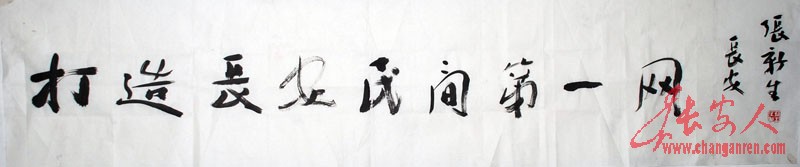 打造長安民间第一网
張新生
長安
长安人
www.changanren.com